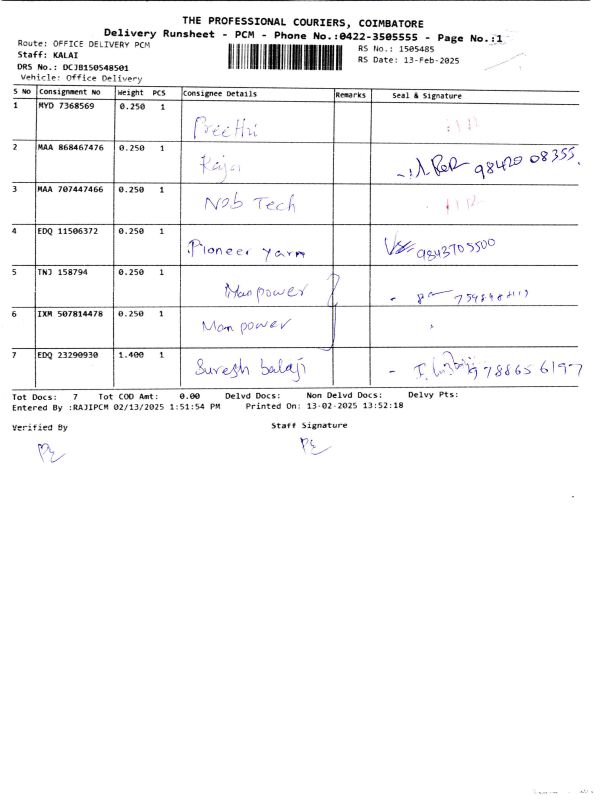 THE PROFESSIONAL COURIERS, COIMBATORE
Delivery Runsheet - PCM - Phone No.:0422-3505555 - Page No.:1
Route: OFFICE DELIVERY PCM
RS No.: 1505485
Staff: KALAI
RS Date: 13-Feb-2025
DRS No.: DCJB150548501
Vehicle: Office Delivery
S No Consignment No Weight PCS Consignee Details Remarks Seal & Signature
1 MYD 7368569 0.250 1
Preethi
2 MAA 868467476 0.250 1
Raja 98420 08355
3 MAA 707447466 0.250 1
Nob Tech
4 EDQ 11506372 0.250 1
Pioneer yarn 9843705500
5 TNJ 158794 0.250 1
Manpower
6 IXM 507814478 0.250 1
Man power
7 EDQ 23290930 1.400 1
Suresh balaji 978865 6197
Tot Docs: 7 Tot COD Amt: 0.00 Delvd Docs: Non Delvd Docs: Delvy Pts:
Entered By :RAJIPCM 02/13/2025 1:51:54 PM Printed On: 13-02-2025 13:52:18
Verified By Staff Signature